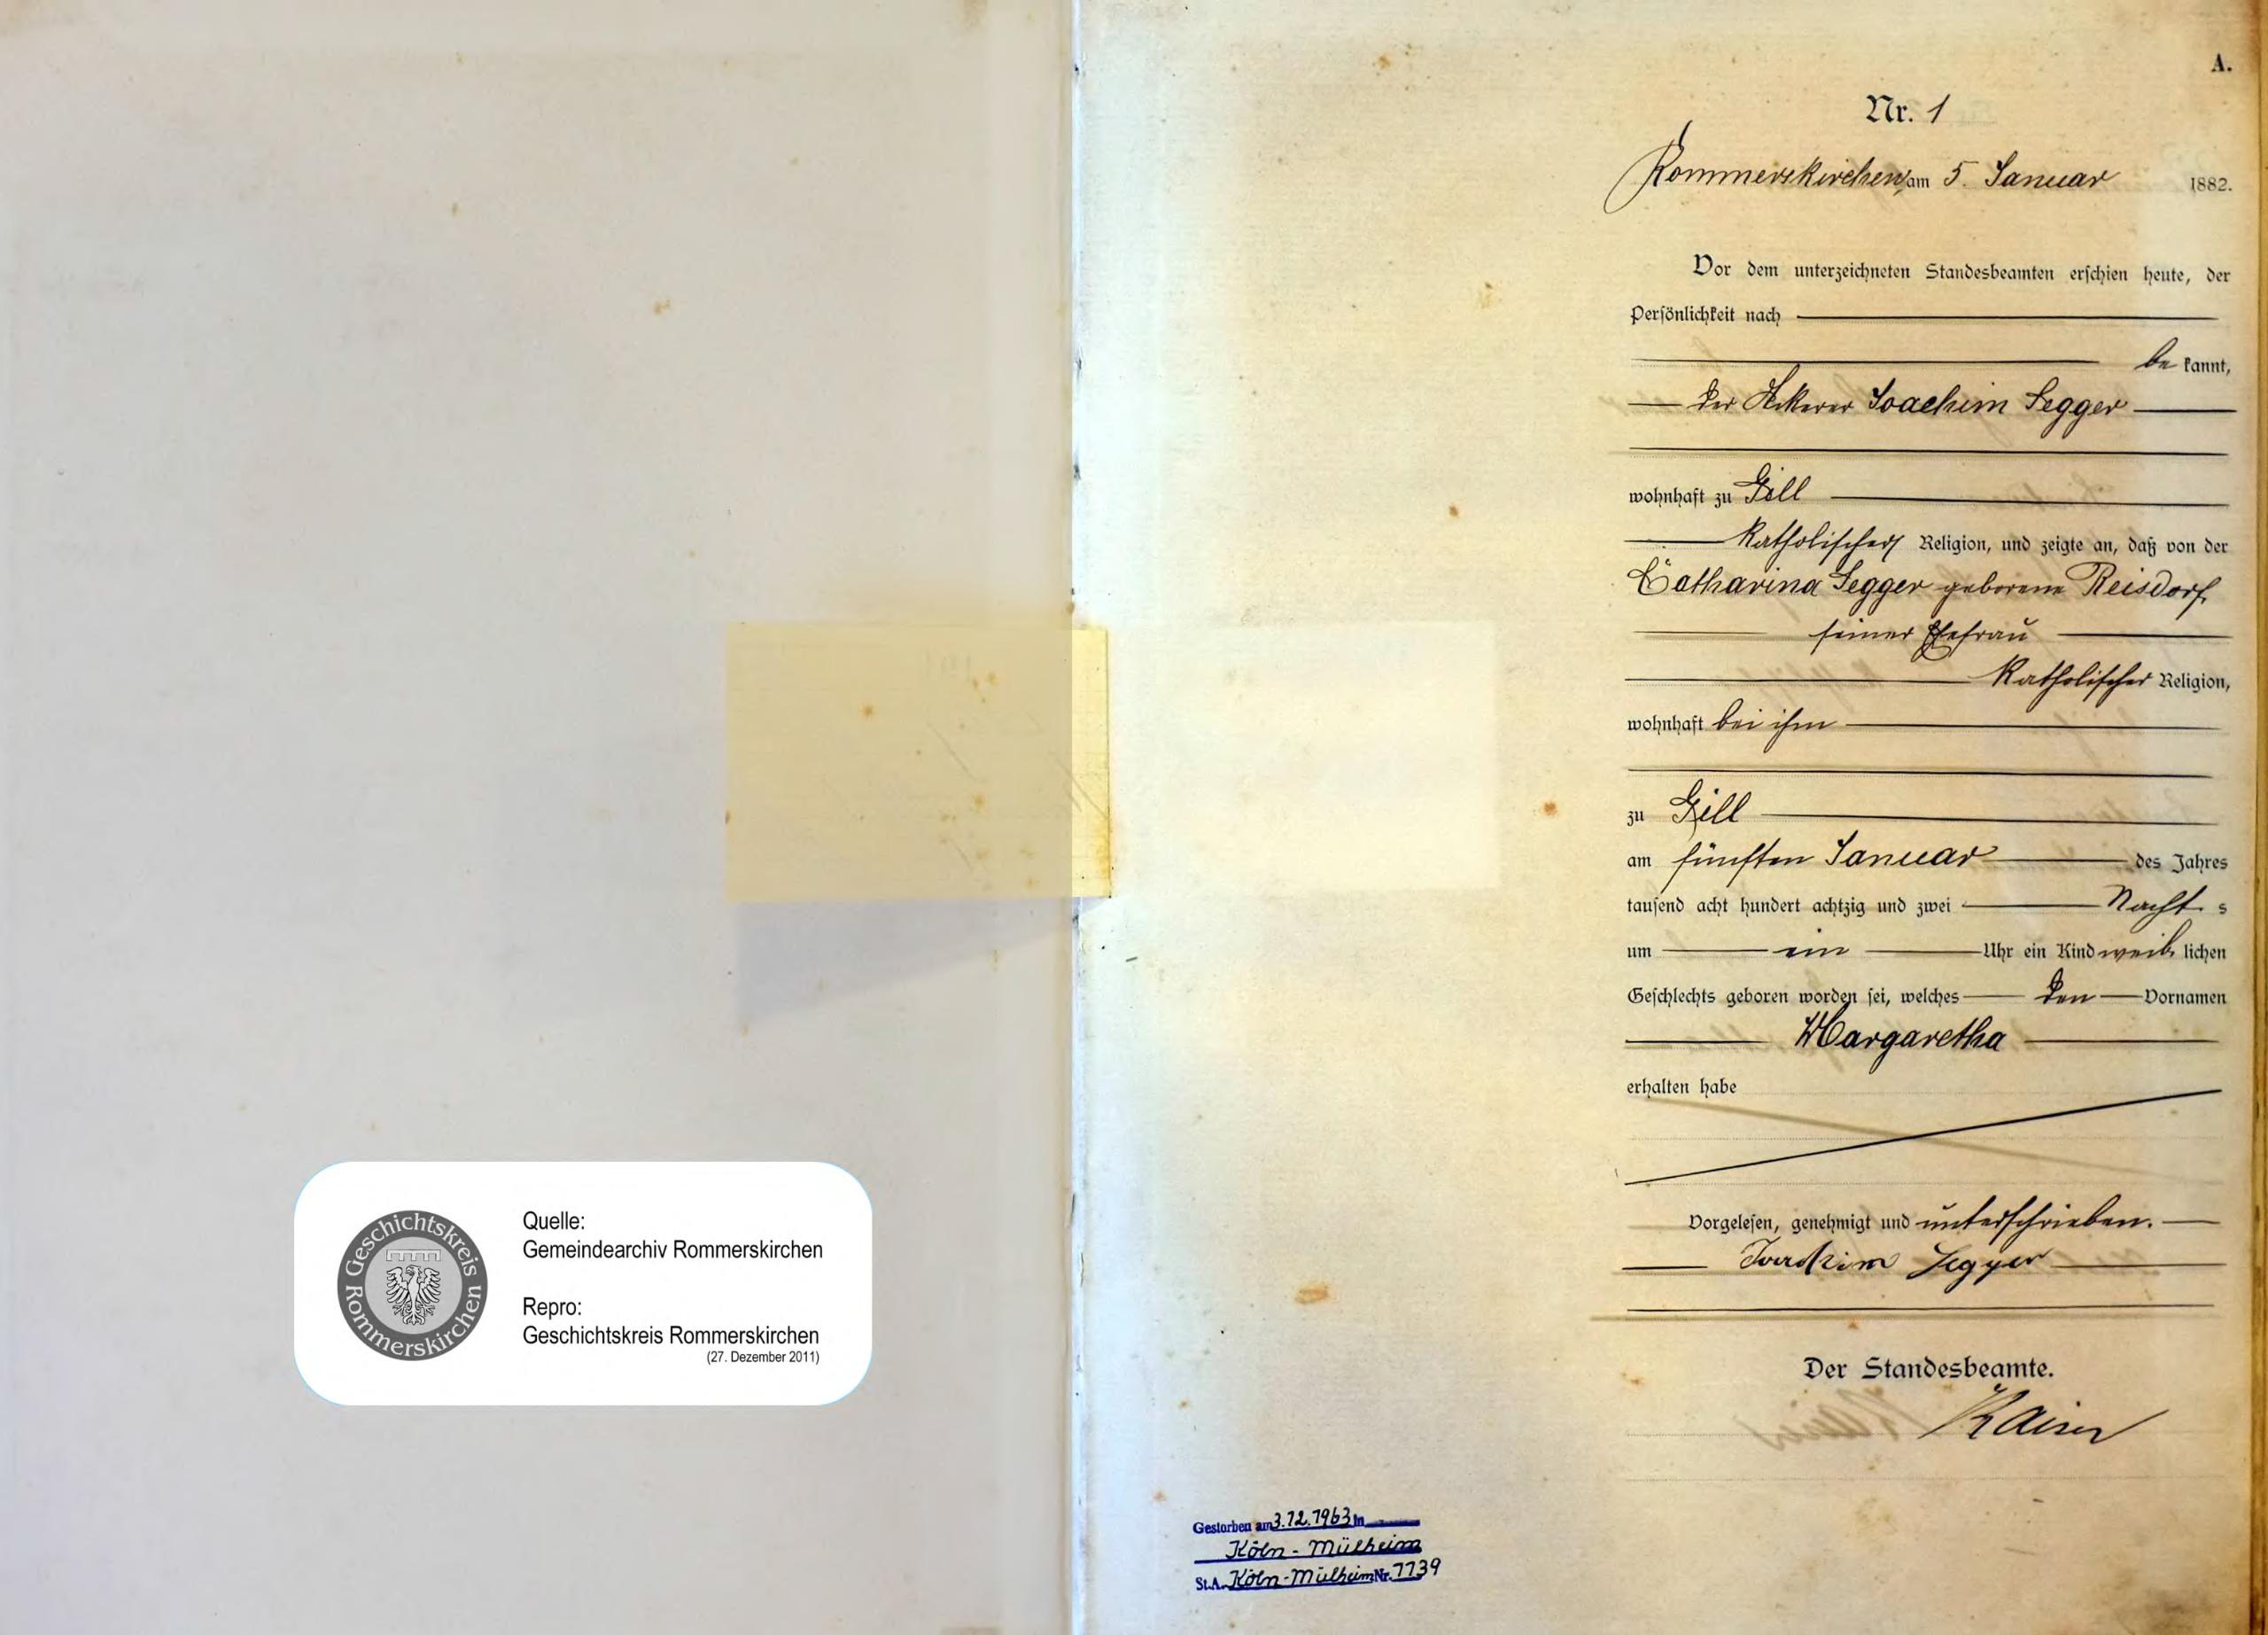 Geschichtskreis Rommerskirchen
Quelle:
Gemeindearchiv Rommerskirchen
Repro:
Geschichtskreis Rommerskirchen
(27. Dezember 2011)
A.
Nr. 1
Rommerskirchen, am 5. Januar 1882.
Vor dem unterzeichneten Standesbeamten erschien heute, der
Persönlichkeit nach
be kannt,
der Ackerer Joachim Segger
wohnhaft zu Gill
katholischer Religion, und zeigte an, daß von der
Catharina Segger geborene Reisdorf,
seiner Ehefrau
katholischer Religion,
wohnhaft bei ihm
zu Gill
am fünften Januar des Jahres
tausend acht hundert achtzig und zwei Nacht s
um ein Uhr ein Kind weib lichen
Geschlechts geboren worden sei, welches den Vornamen
Margaretha
erhalten habe
Vorgelesen, genehmigt und unterschrieben.
Joachim Segger
Der Standesbeamte.
Kaiser
Gestorben am 3.12.1963 in
Köln-Mülheim
St.A. Köln-Mülheim Nr. 1139